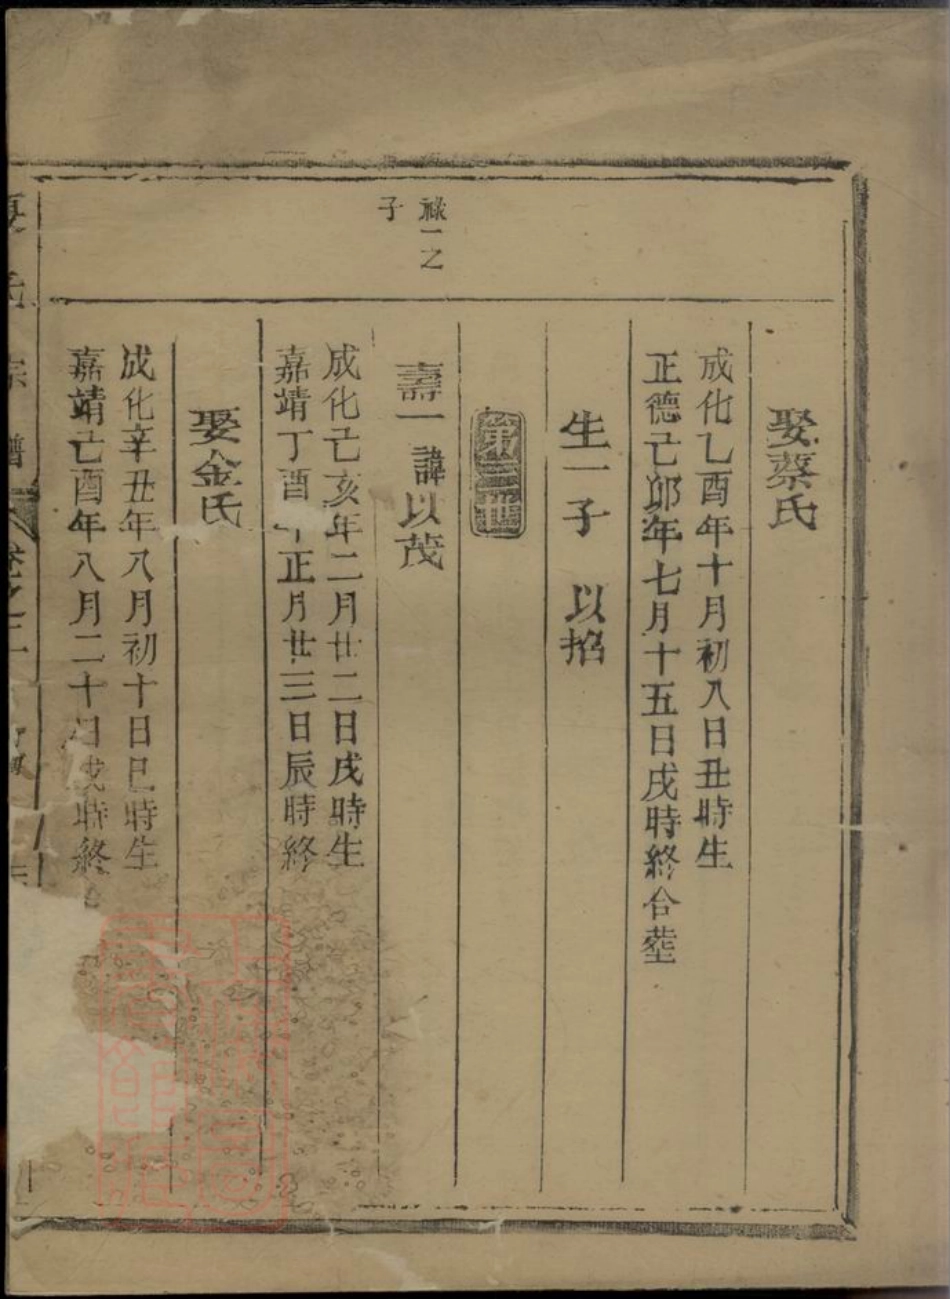 娶蔡氏
成化乙酉年十月初八日丑時生
正德己卯年七月十五日戌時終合塟
生一子 以㧾
第三世
祿一之
子
壽一諱以茂
成化己亥年二月廿二日戌時生
嘉靖丁酉年正月廿三日辰時終
娶金氏
成化辛丑年八月初十日巳時生
嘉靖己酉年八月二十日戌時終合
宗譜 卷之二